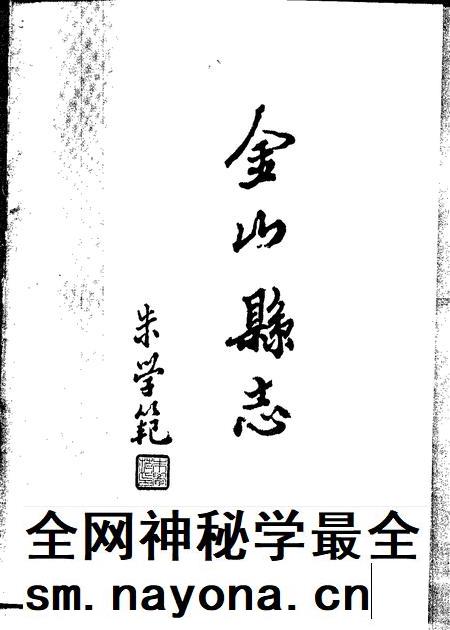 金山縣志
朱学範
全网神秘学最全
sm.nayona.cn